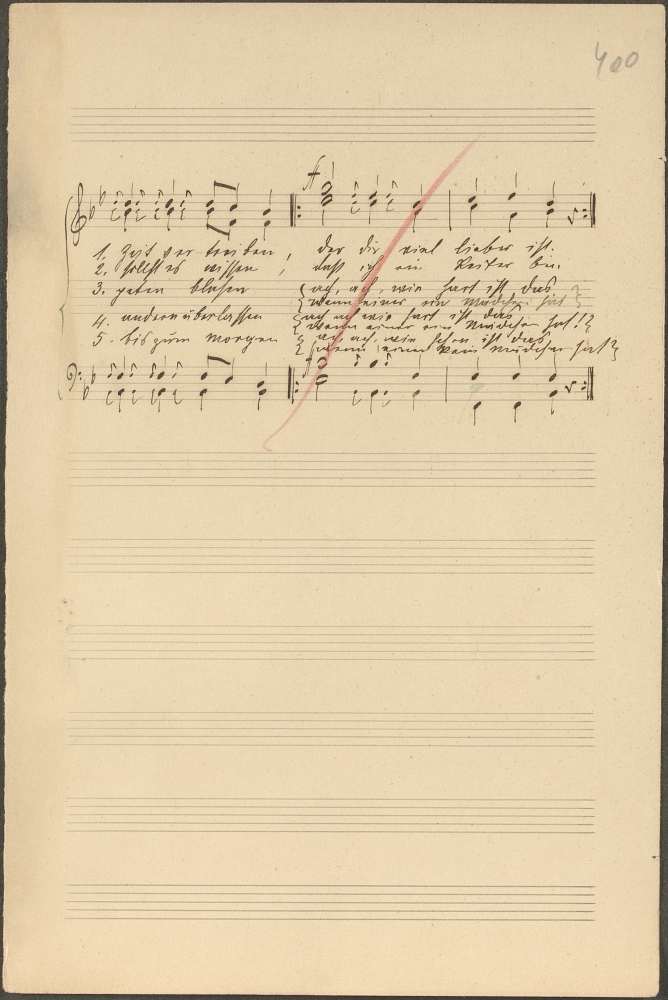 400
ff
1. Zeit ver treiben, der dir viel lieber ist.
2. sollst es wissen, daß ich ein Reiter bin.
3. blasen { ach, ach, wie hart ist das
{ wenn einer ein Mädchen hat }
4. andern überlassen { ach ach wie hart ist das
{ wenn einer ein Mädchen hat!? }
5. bis zum Morgen { ach, ach, wie schön ist das
{ wenn einer kein Mädchen hat? }
f